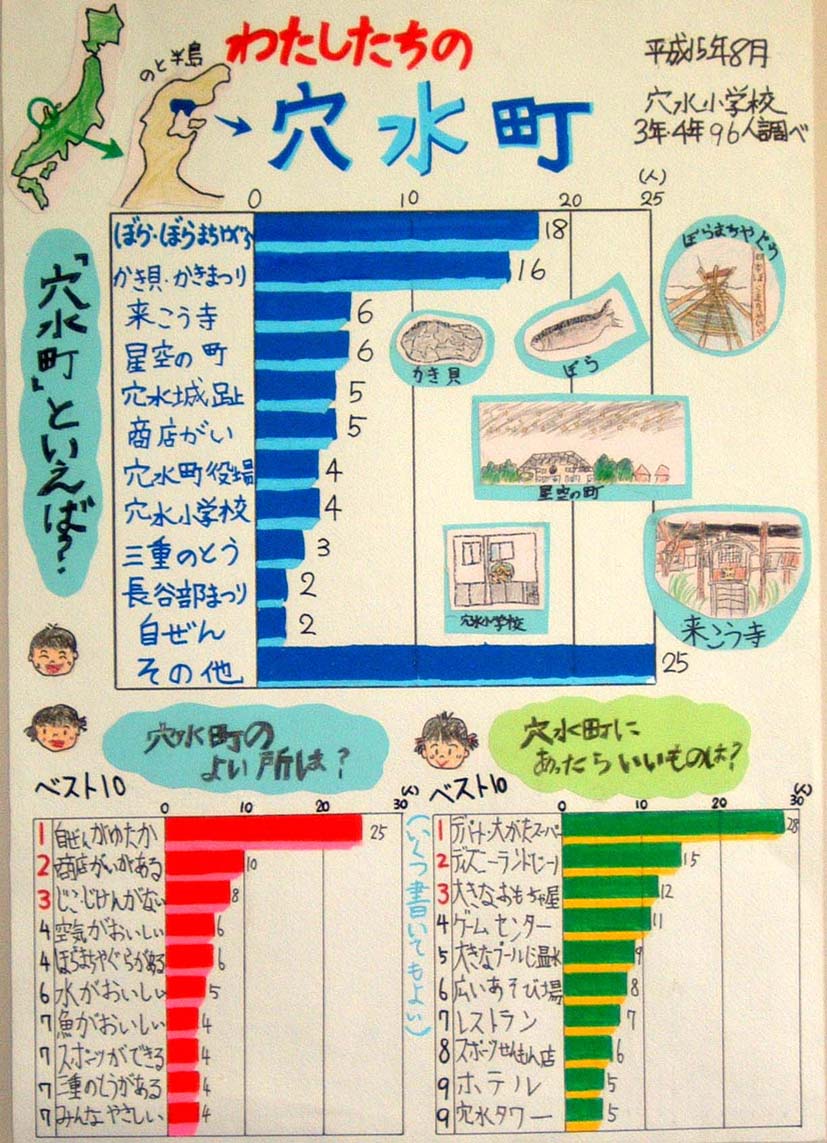 わたしたちの
穴水町
のと半島
平成15年8月
穴水小学校
3年・4年96人調べ
「穴水町」といえば？
(人)
0 10 20 25
ぼら・ぼらまちやぐら 18
かき貝・かきまつり 16
来こう寺 6
星空の町 6
穴水城趾 5
商店がい 5
穴水町役場 4
穴水小学校 4
三重のとう 3
長谷部まつり 2
自ぜん 2
その他 25
ぼらまちやぐら
かき貝
ぼら
星空の町
穴水小学校
来こう寺
穴水町の
よい所は？
ベスト10
0 10 20 30(人)
1 自ぜんがゆたか 25
2 商店がいがある 10
3 じこ・じけんがない 8
4 空気がおいしい 6
4 ぼらまちやぐらがある 6
6 水がおいしい 5
7 魚がおいしい 4
7 スポーツができる 4
7 三重のとうがある 4
7 みんなやさしい 4
(いくつ書いてもよい)
穴水町に
あったらいいものは？
ベスト10
0 10 20 30(人)
1 デパート・大がたスーパー 28
2 ディズニーランド 15
3 大きなおもちゃ屋 12
4 ゲームセンター 11
5 大きなプール 温水 9
6 広いあそび場 8
7 レストラン 7
8 スポーツせんもん店 6
9 ホテル 5
9 穴水タワー 5